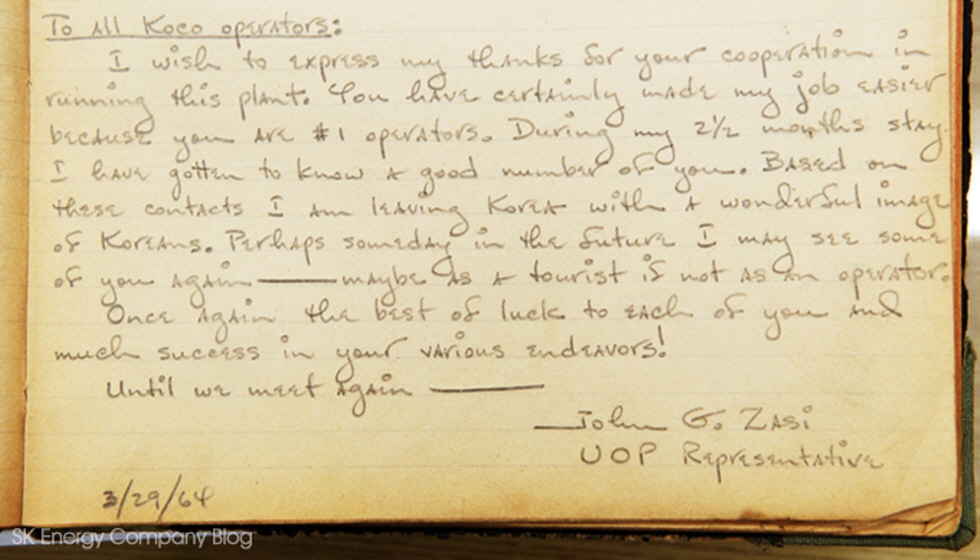 To all Koco operators:
I wish to express my thanks for your cooperation in
running this plant. You have certainly made my job easier
because you are #1 operators. During my 2½ months stay
I have gotten to know a good number of you. Based on
these contacts I am leaving Korea with a wonderful image
of Koreans. Perhaps someday in the future I may see some
of you again — maybe as a tourist if not as an operator.
Once again the best of luck to each of you and
much success in your various endeavors!
Until we meet again —
John G. Zasi
UOP Representative
3/29/64
SK Energy Company Blog